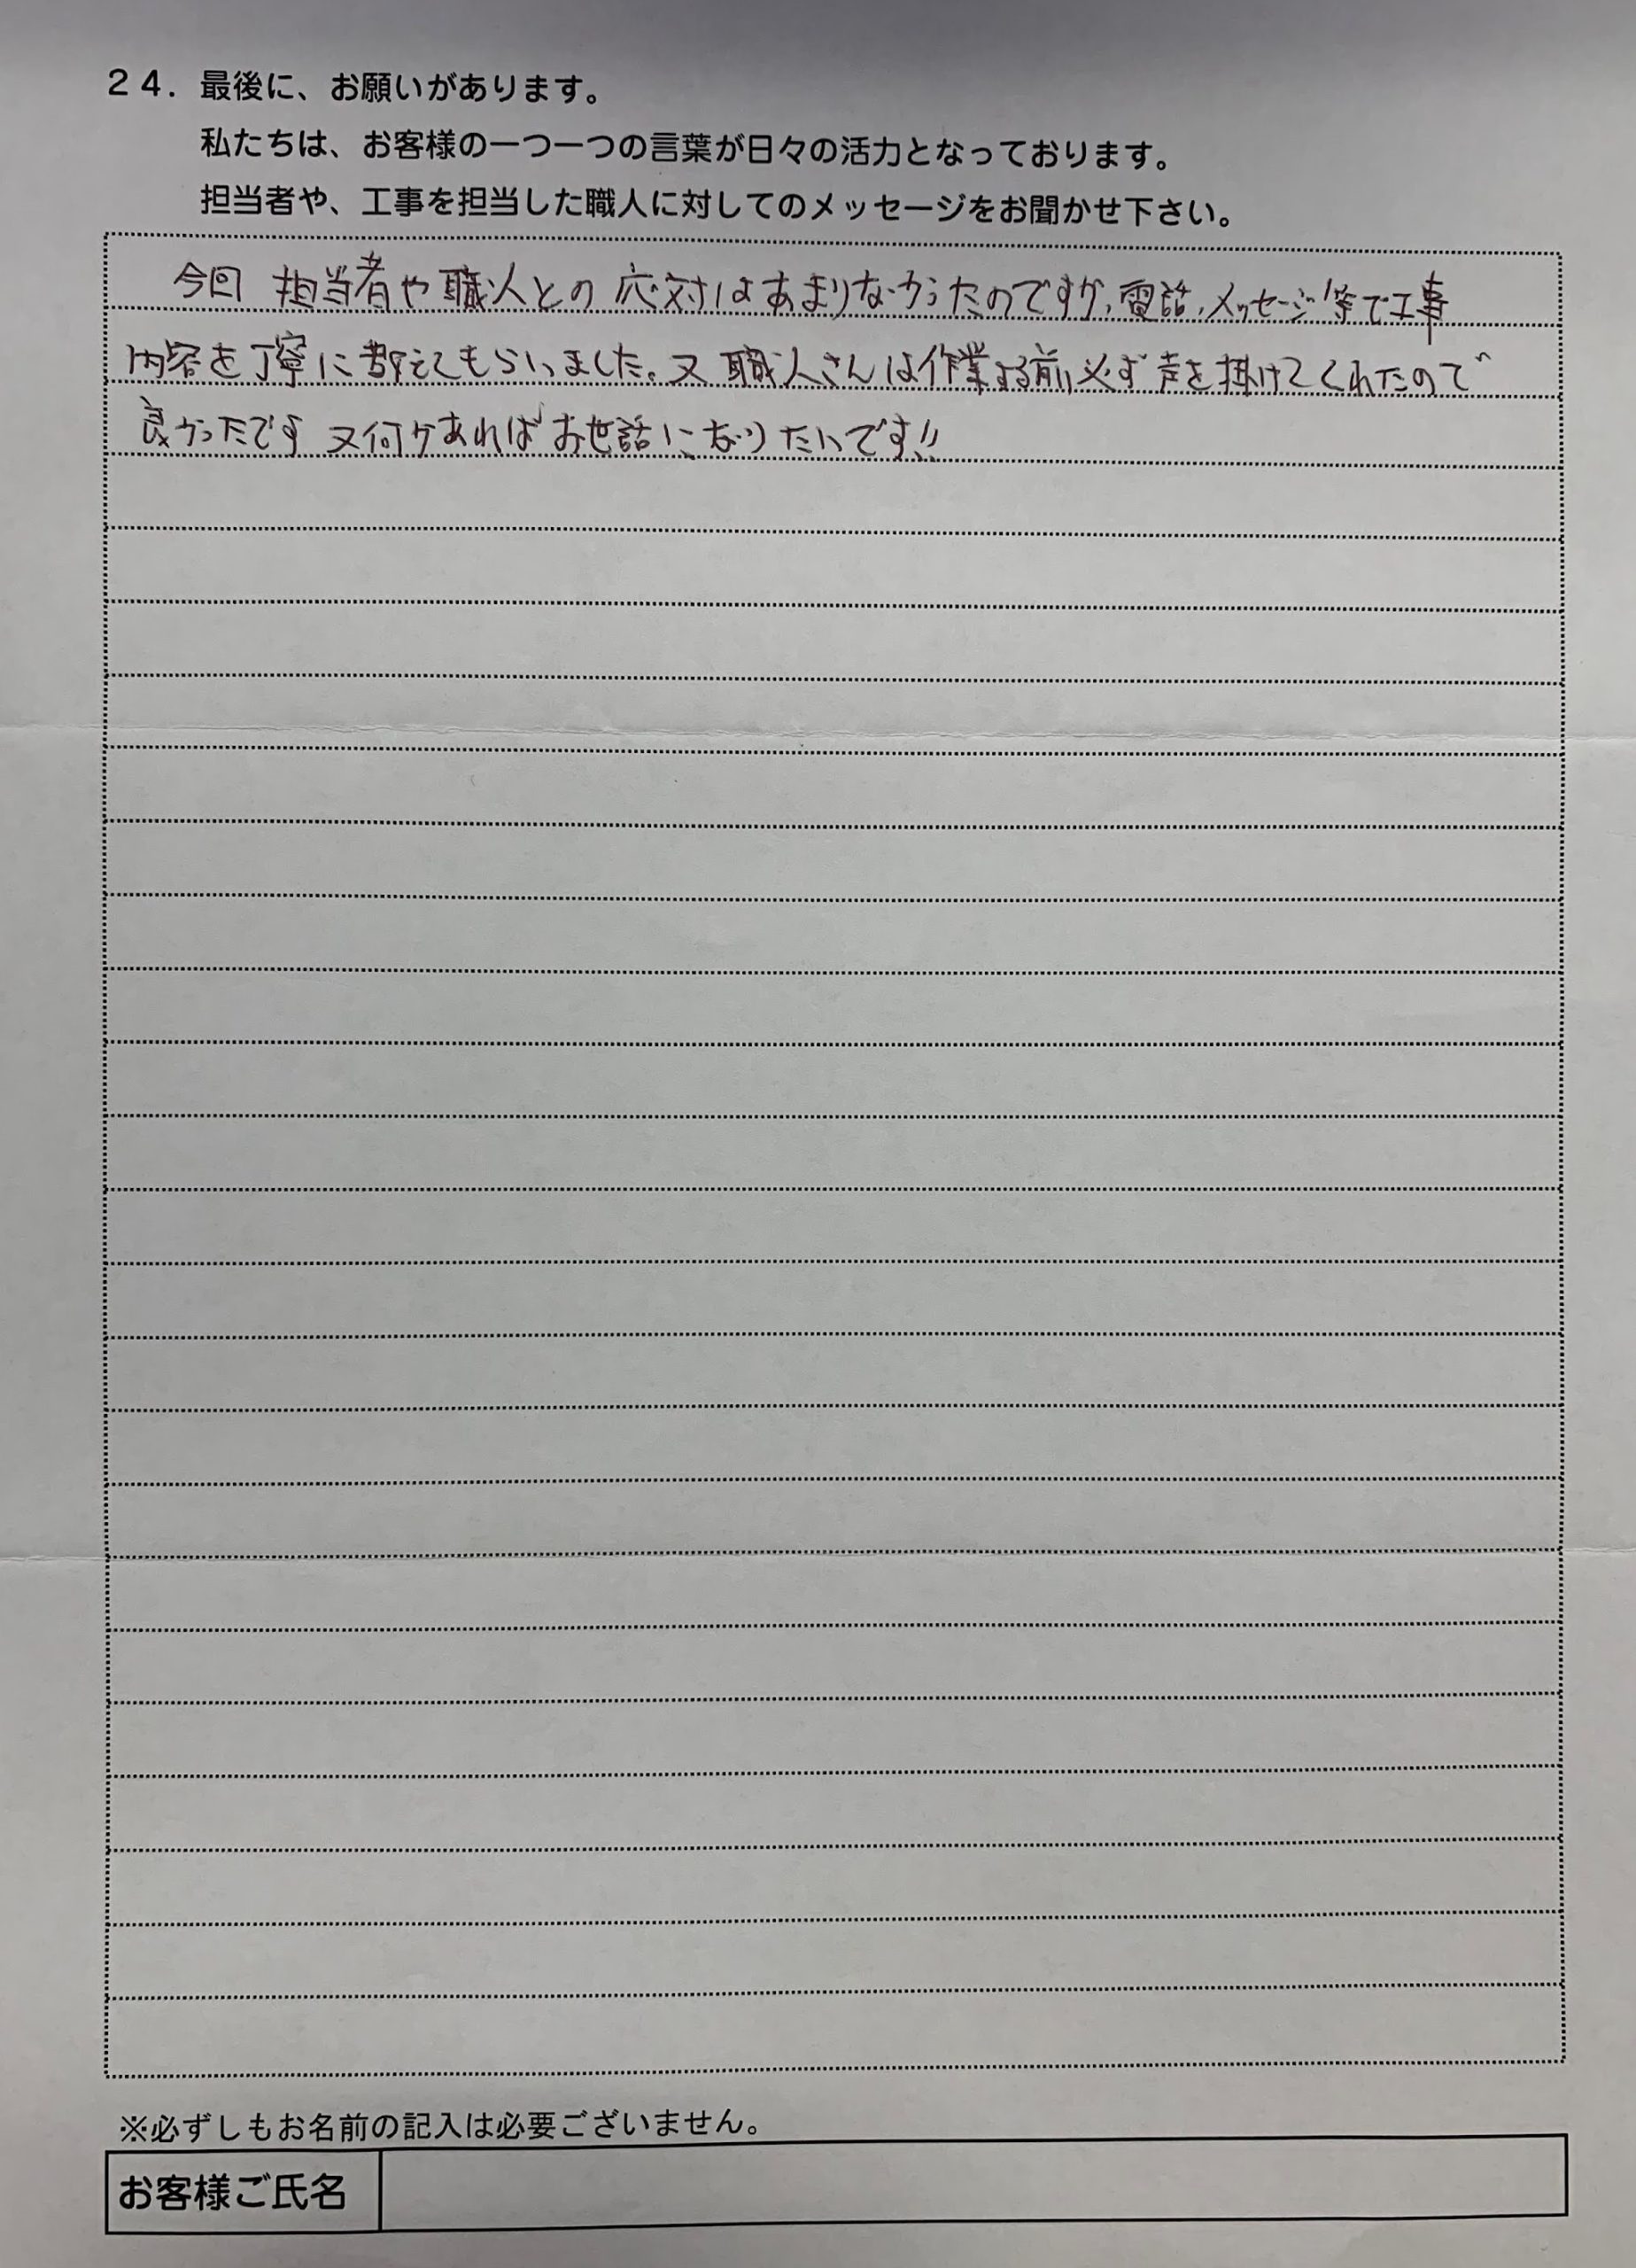 ２４．最後に、お願いがあります。
私たちは、お客様の一つ一つの言葉が日々の活力となっております。
担当者や、工事を担当した職人に対してのメッセージをお聞かせ下さい。
今回 担当者や職人との応対はあまりなかったのですが、電話、メッセージ等で工事
内容を丁寧に教えてもらいました。又 職人さんは作業する前必ず声を掛けてくれたので
良かったです 又何かあればお世話になりたいです!!
※必ずしもお名前の記入は必要ございません。
お客様ご氏名